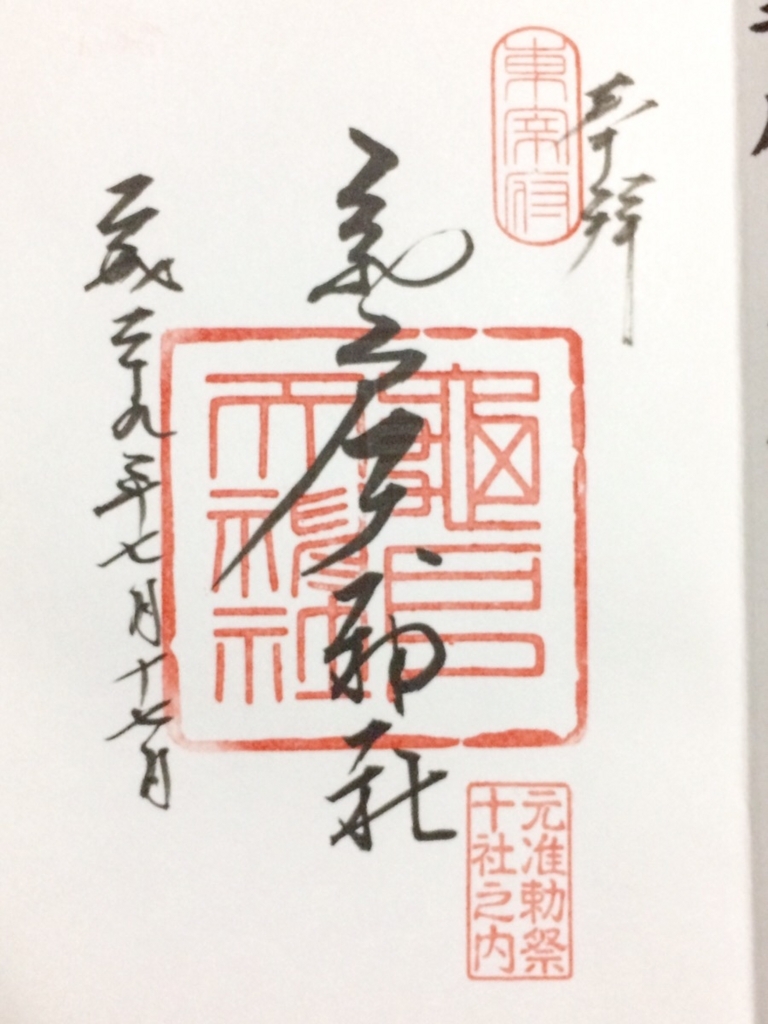 奉拝
東宰府
亀戸天神社
龜戸
天神社
平成二十九年七月十七日
元准勅祭
十社之内